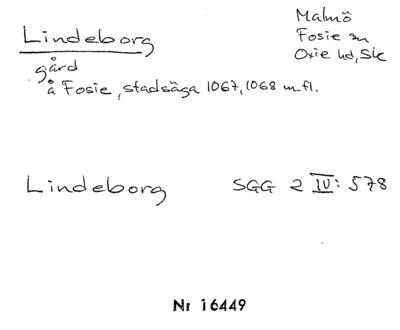 Lindeborg
Malmö
Fosie sn
Oxie hd, Sk
gård
å Fosie, stadsäga 1067, 1068 m.fl.
Lindeborg SGG 2 IV: 578
Nr 16449